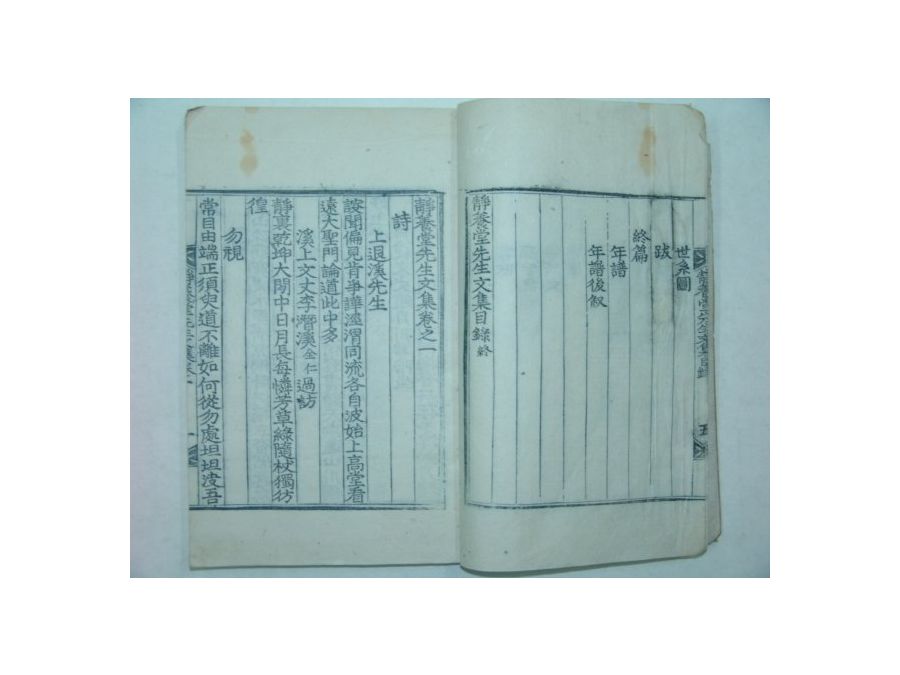 世系圖
跋
終篇
年譜
年譜後叙
靜養堂先生文集目錄終
靜養堂先生文集卷之一
詩
上退溪先生
諛聞偏見肯爭譁涇渭同流各自波始上高堂看
遠大聖門論道此中多
溪上文丈李潛溪金仁過訪
靜裏乾坤大閒中日月長每憐芳草綠隨杖獨彷
徨
勿視
常目由端正須臾道不離如何從勿處坦坦